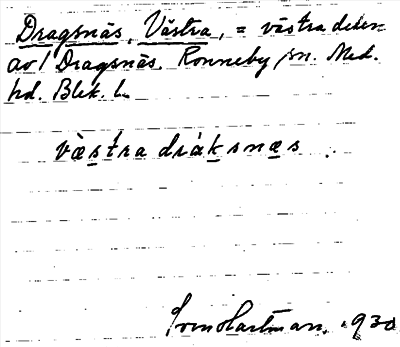 Dragsnäs, Västra, = västra delen
av! Dragsnäs. Ronneby sn. Med.
hd. Blek. l.
västra dráksnæs.
Sven Hartman. 1930